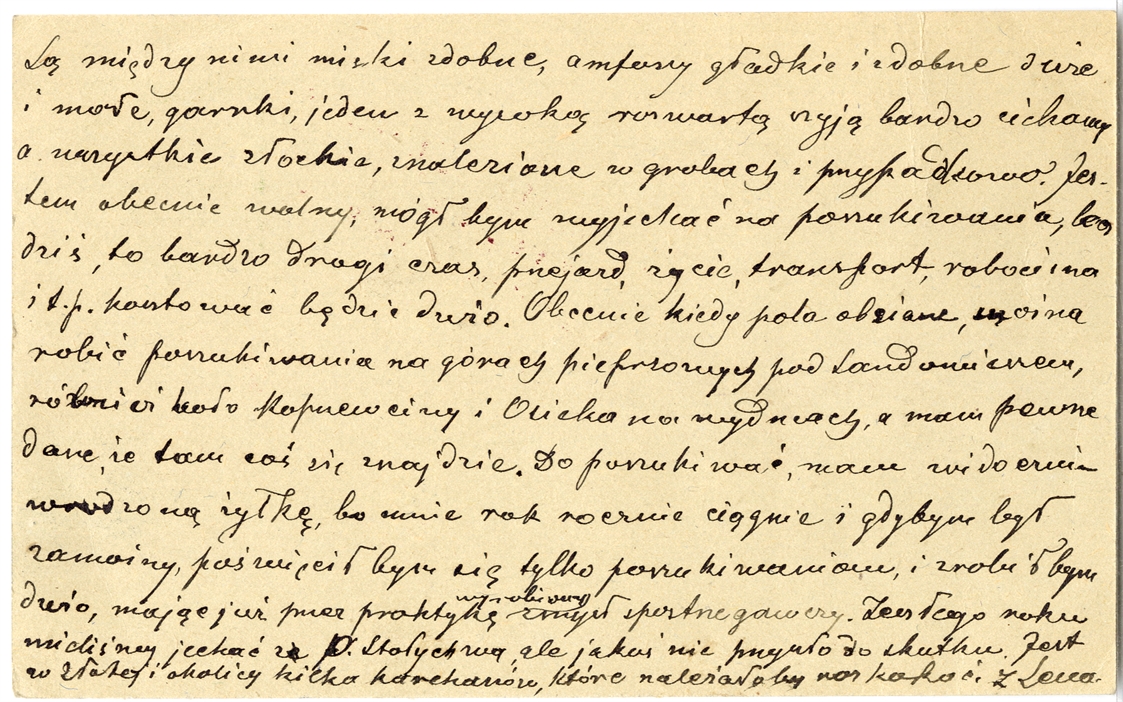 Są między nimi miski zdobne, amfory gładkie i zdobne duże
i małe, garnki, jeden z wysoką rozwartą szyją bardzo ciekawy
a wszystkie złockie, znalezione w grobach i przypadkowo. Jes-
tem obecnie wolny, mógł bym wyjechać na poszukiwania, bo
dziś, to bardzo drogi czas, przejazd, życie, transport, robocizna
i t.p. kosztować będzie dużo. Obecnie kiedy pola obsiane, można
robić poszukiwania na górach pieprzowych pod Sandomierzem,
również koło Koprzewnicy i Osieka na wydmach, a mam pewne
dane, że tam coś się znajdzie. Do poszukiwać, mam widocznie
wrodzoną żyłkę, bo mnie rok rocznie ciągnie i gdybym był
zamożny, poświęcił bym się tylko poszukiwaniom, i zrobił bym
dużo, mając już przez praktykę wyrobiony zmysł spostrzegawczy. Zeszłego roku
mieliśmy jechać z P. Stołychwą, ale jakoś nie przyszło do skutku. Jest
w Złotej i okolicy kilka kurchanów, które należało by rozkopać. Z Lena-